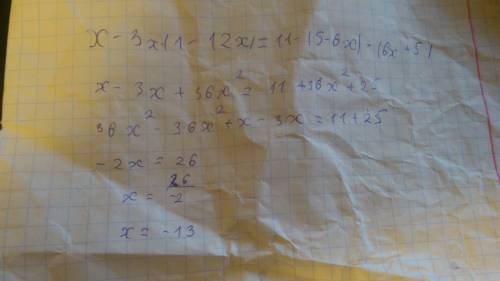 x - 3x(1 - 12x) = 11 - (5-6x) · (6x+5)
x - 3x + 36x² = 11 + 36x² + 25
36x² - 36x² + x - 3x = 11 + 25
-2x = 26
x = 26/-2
x = -13